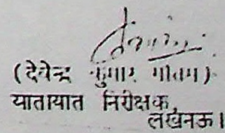 (देवेन्द्र कुमार गौतम)
यातायात निरीक्षक,
लखनऊ।